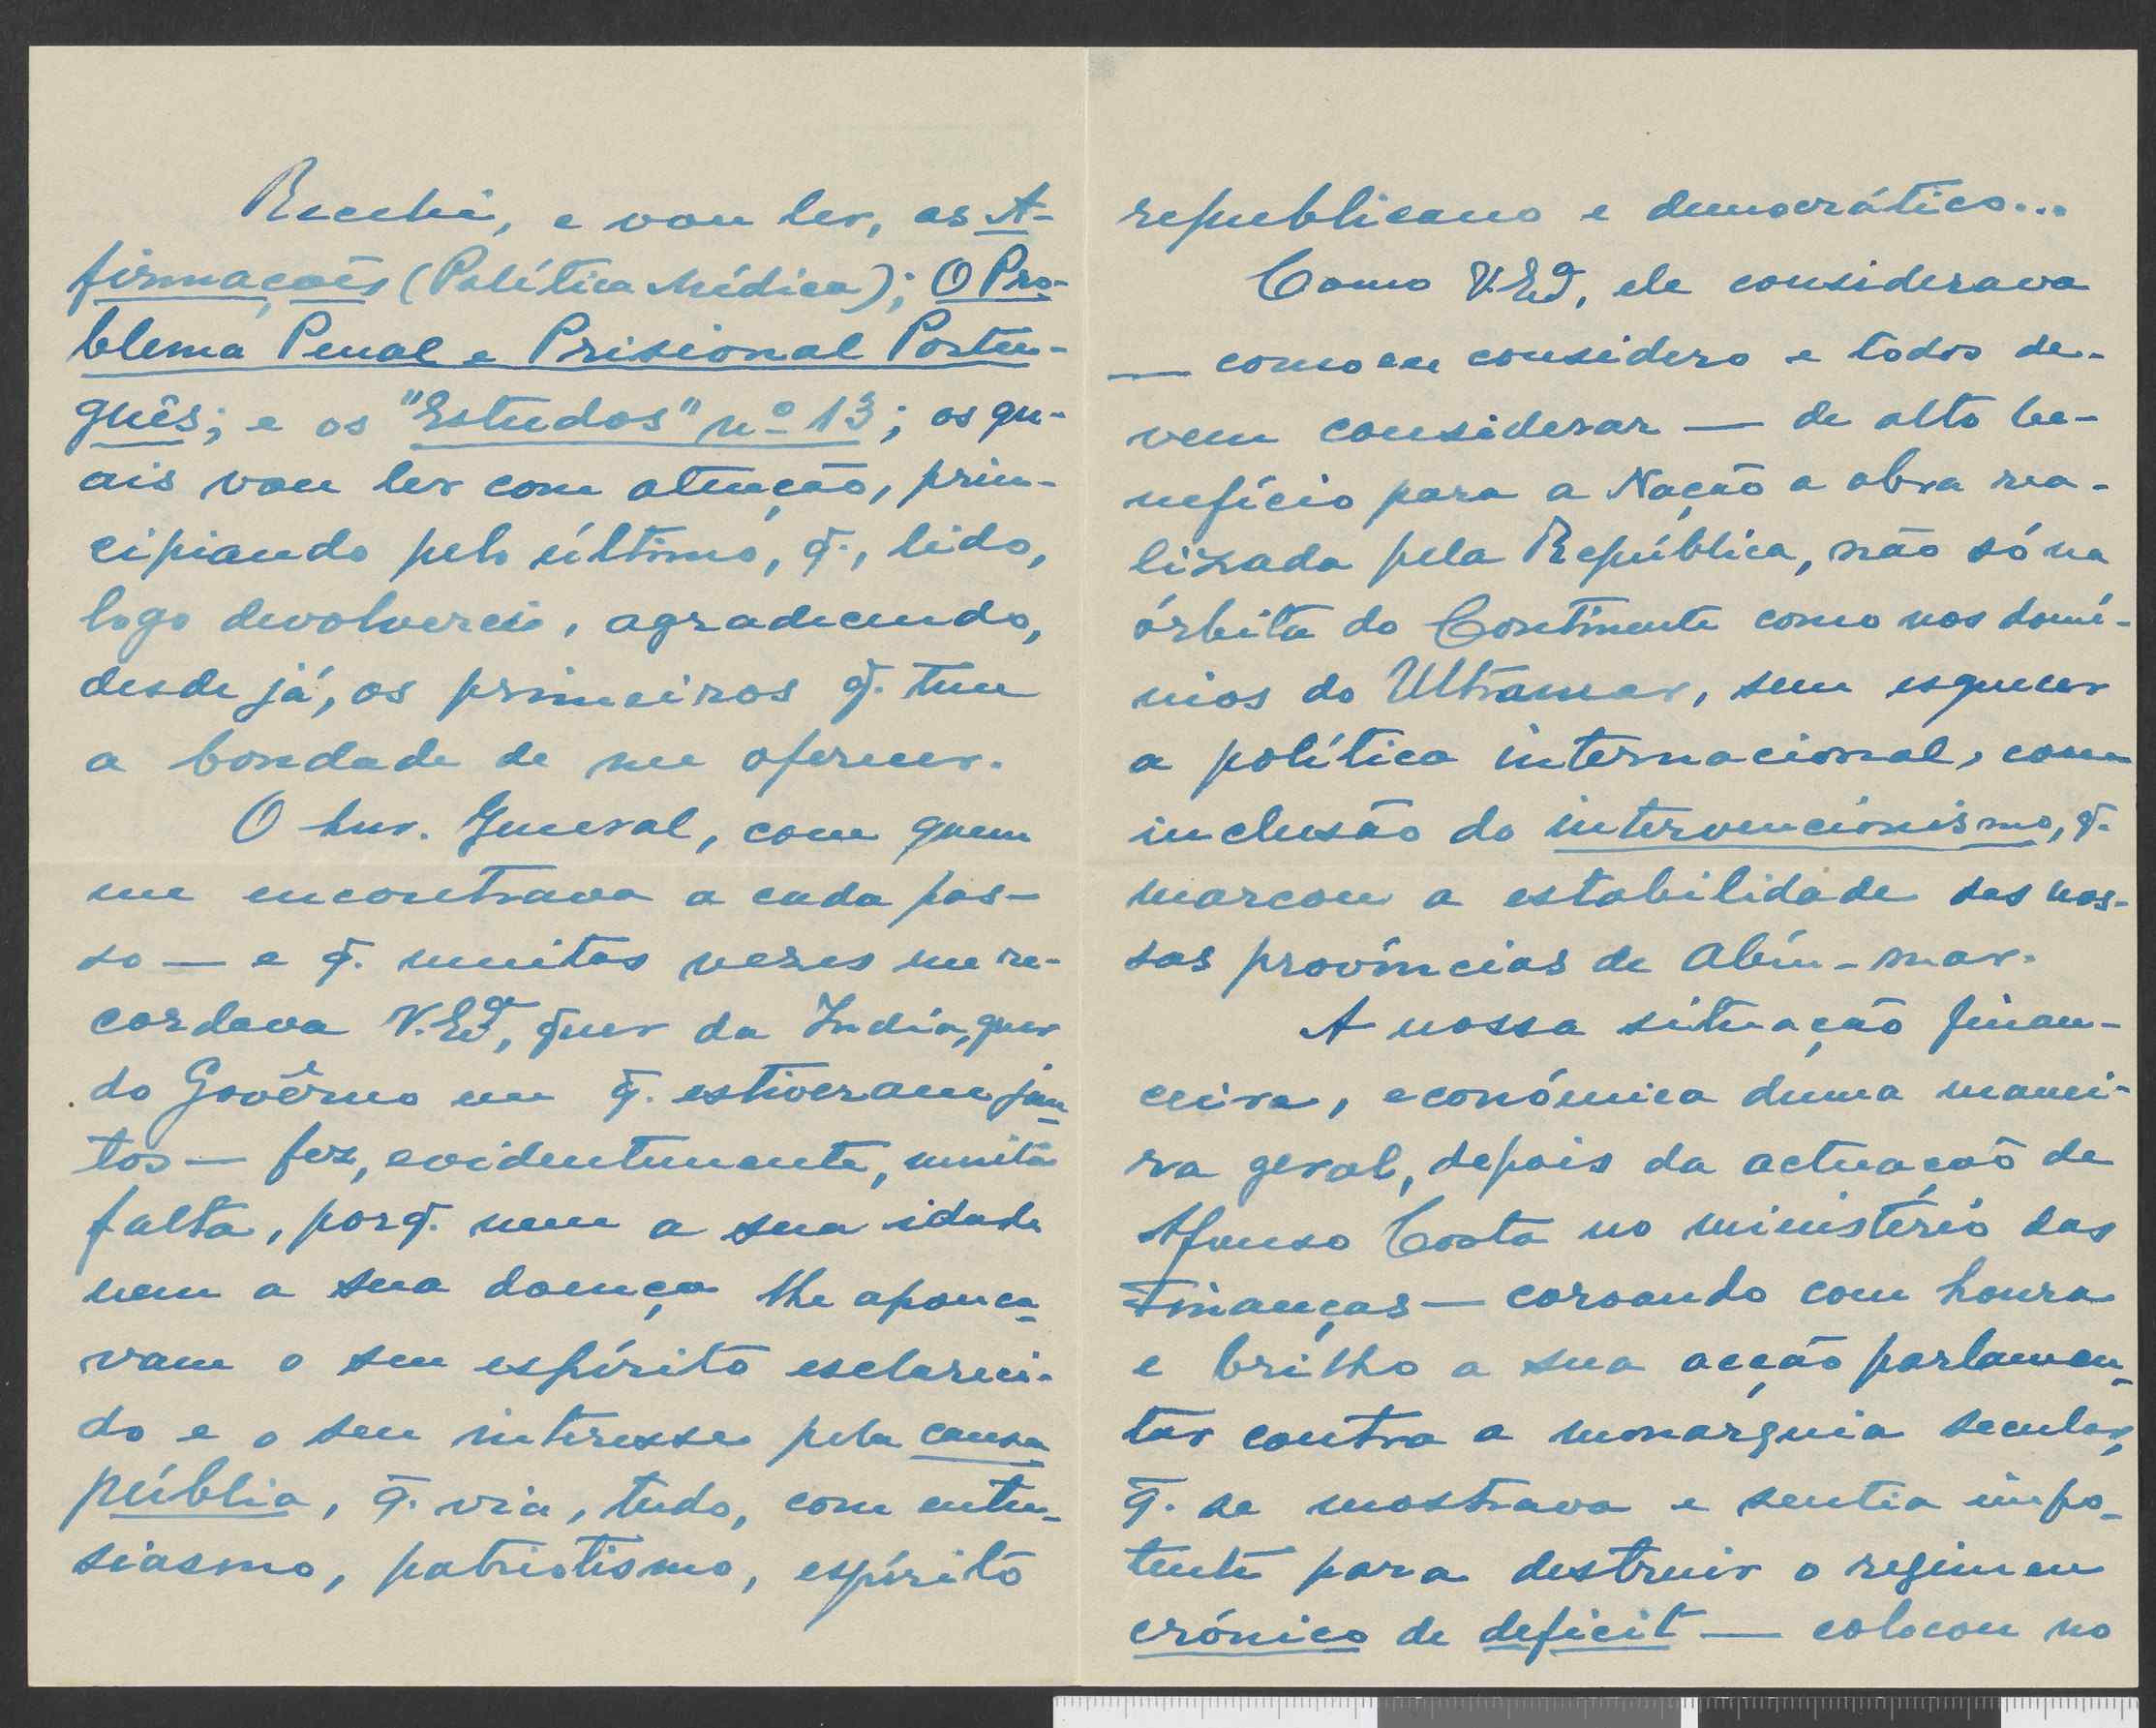 Recebi, e vou ler, as A-
firmações (Política Médica); O Pro-
blema Penal e Prisional Portu-
guês; e os "Estudos" nº 13; os qu-
ais vou ler com atenção, prin-
cipiando pelo último, q̃., lido,
logo devolverei, agradecendo,
desde já, os primeiros q̃. teve
a bondade de me oferecer.
O General, com quem
me encontrava a cada pas-
so — e q̃. muitas vezes me re-
cordava V. Exª, quer da Índia, quer
do Govêrno em q̃. estiveram jun-
tos — fez, evidentemente, muita
falta, porq̃. nem a sua idade
nem a sua doença lhe apouca-
vam o seu espírito esclareci-
do e o seu interesse pela causa
pública, q̃. via, tudo, com entu-
siasmo, patriotismo, espírito
republicano e democrático...
Como V. Exª, ele considerava
— como eu considero e todos de-
vem considerar — de alto be-
nefício para a Nação a obra rea-
lizada pela República, não só na
órbita do Continente como nos domí-
nios do Ultramar, sem esquecer
a política internacional, com
inclusão do intervencionismo, q̃.
marcou a estabilidade das nos-
sas províncias de além-mar.
A nossa situação finan-
ceira, económica duma manei-
ra geral, depois da actuação de
Afonso Costa no ministério das
Finanças — coroando com honra
e brilho a sua acção parlamen-
tar contra a monarquia secular,
q̃. se mostrava e sentia impo-
tente para destruir o regimen
crónico de deficit — colocou no